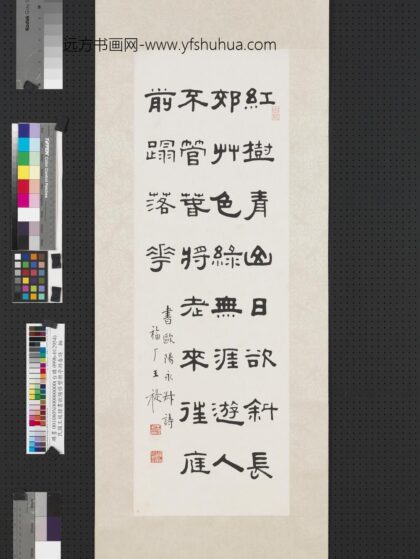 远方书画网-www.yfshuhua.com
紅樹青山日欲斜長
郊艸色綠無涯遊人
不管春將老來往庭
前蹋落花
書歐陽永叔詩
福厂王禔